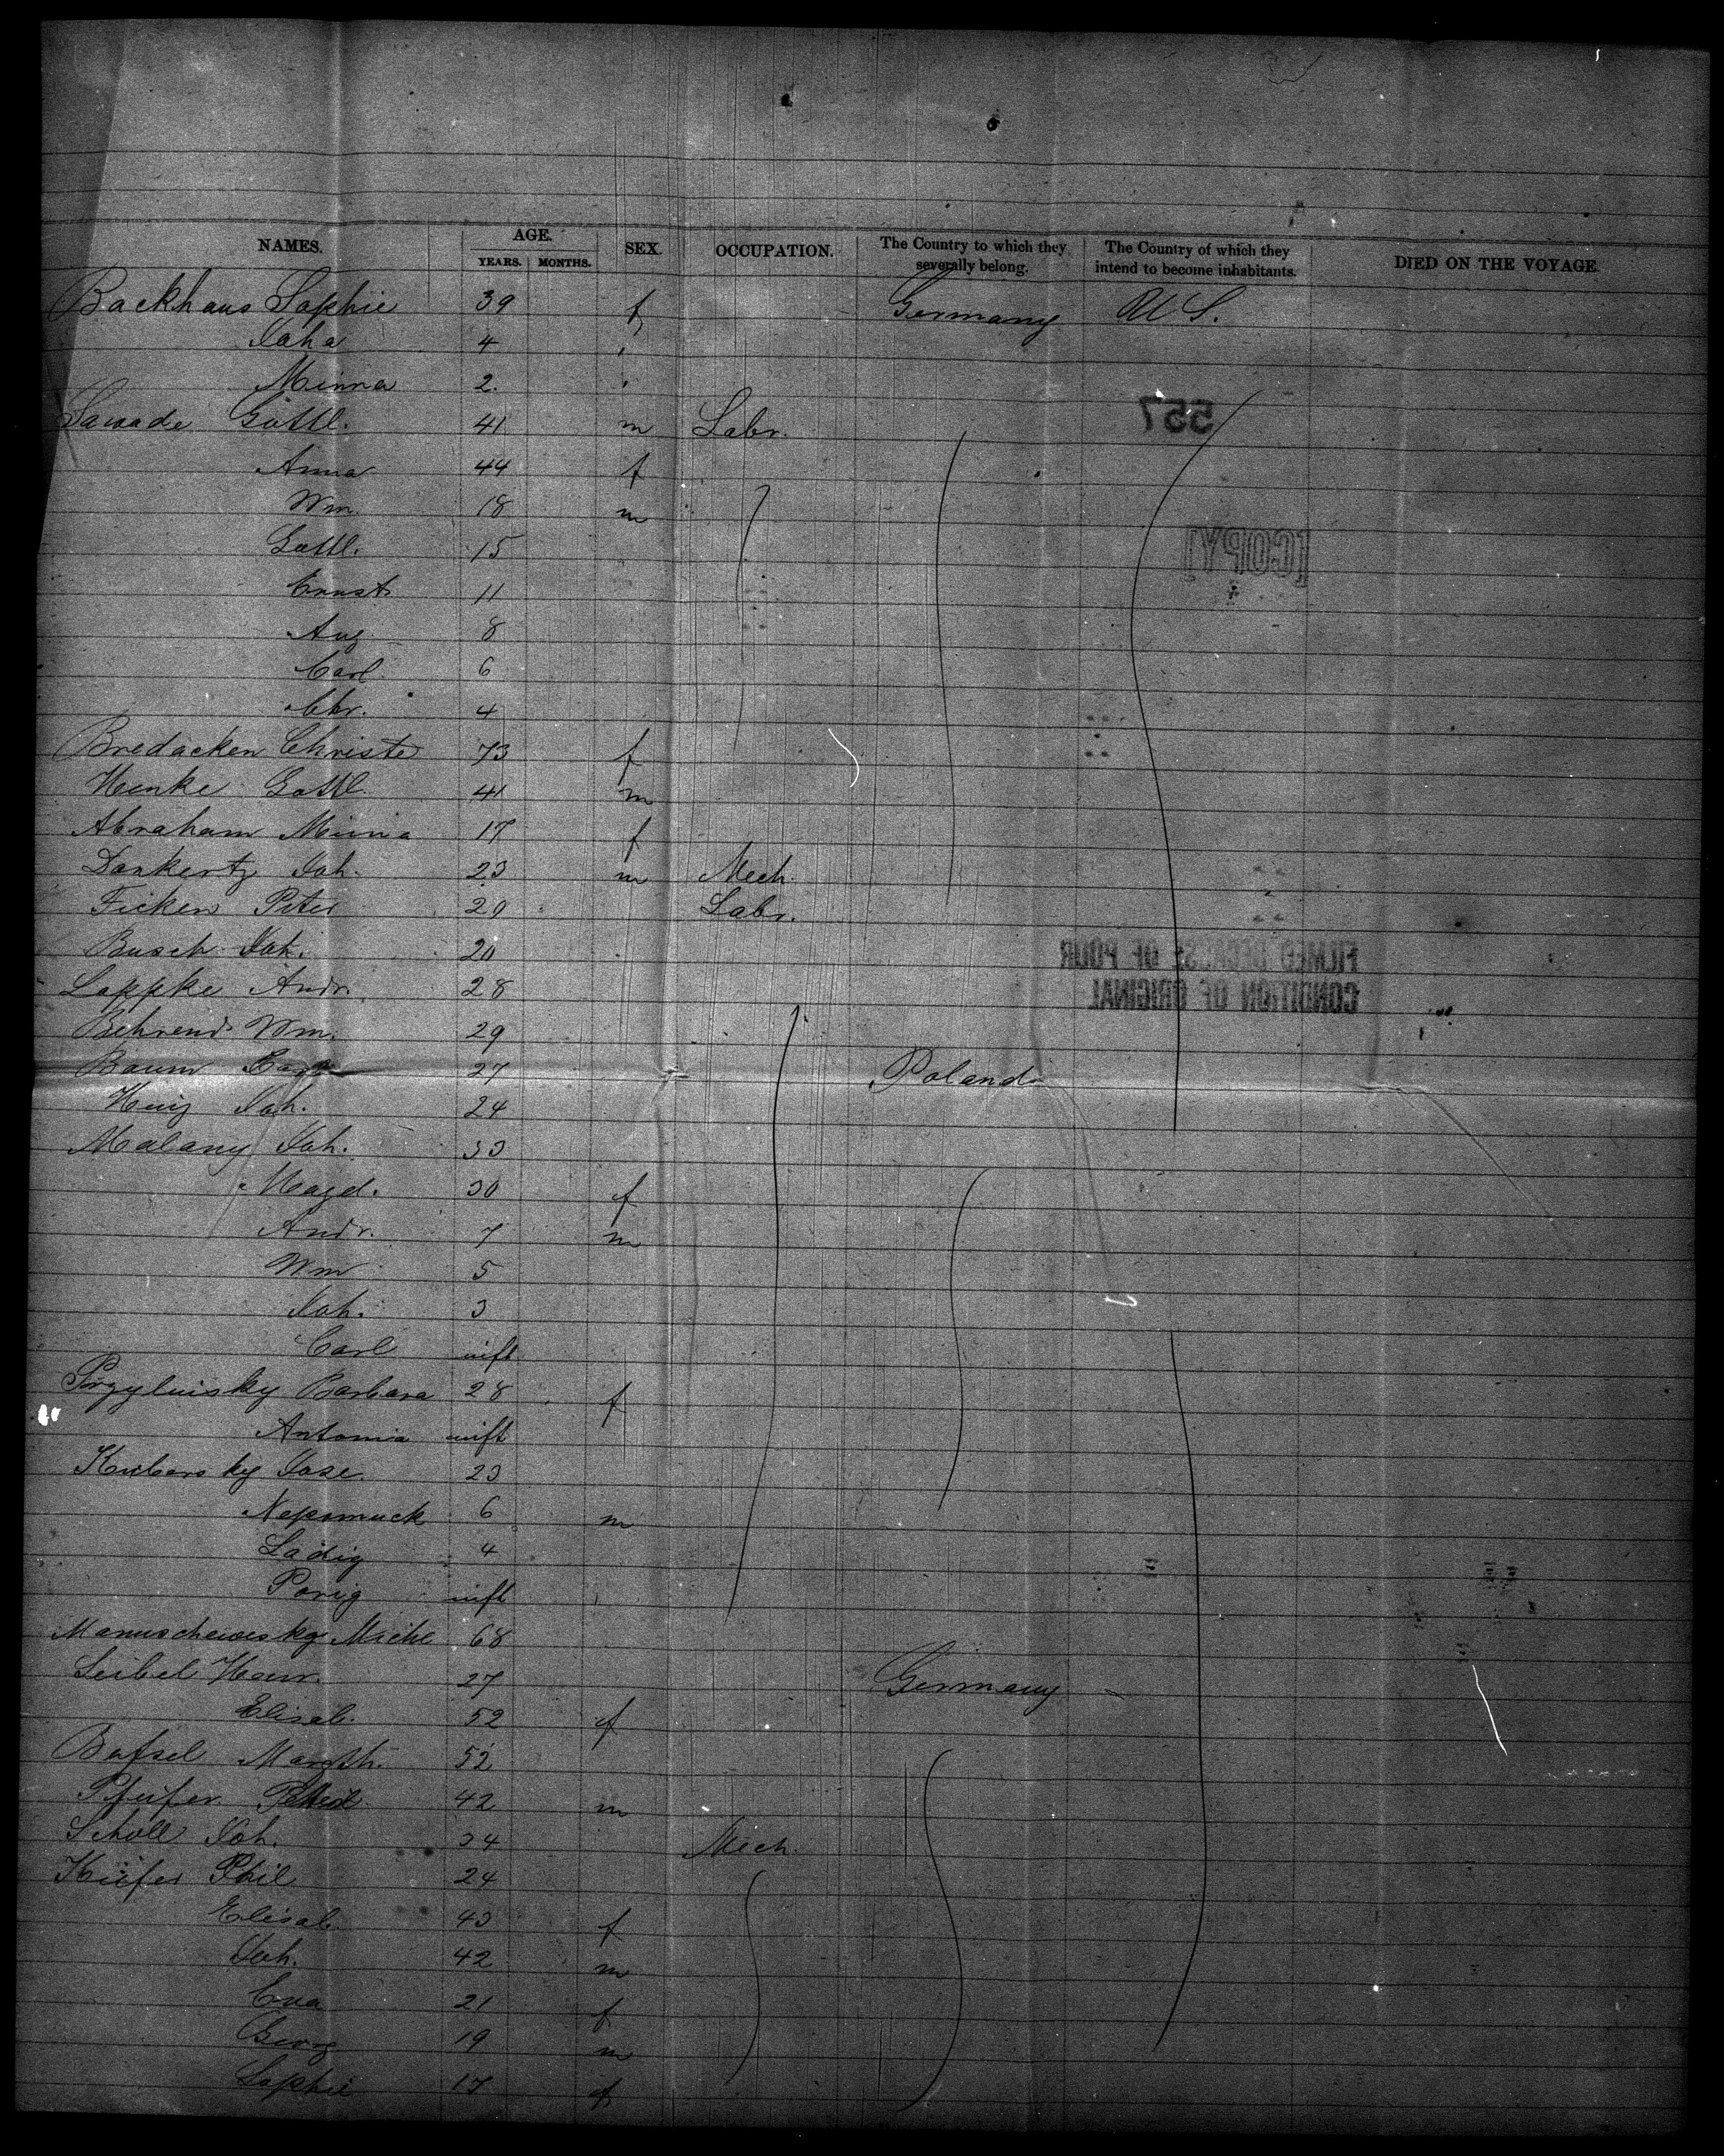 NAMES. AGE. YEARS. MONTHS. SEX. OCCUPATION. The Country to which they severally belong. The Country of which they intend to become inhabitants. DIED ON THE VOYAGE.
Backhaus Sophie 39 f Germany U S.
Joha 4 "
Minna 2. "
Sawade Gottl. 41 m Labr.
557
Anna 44 f
Wm. 18 m
Gottl. 15
[COPY]
Ernst 11
Aug 8
Carl 6
Chr. 4
Bredacken Christe 73 f
Henke Gottl. 41 m
Abraham Minna 17 f
Dankertz Joh. 23 m Mech.
Ficken Peter 29 Labr.
Busch Joh. 20
FILMED BECAUSE OF POOR
CONDITION OF ORIGINAL
Loppke Andr. 28
Behrend Wm. 29
Baum Carl 27 Poland
Joh. 24
Malany Joh. 33
Magd. 30 f
Andr. 7 m
Wm 5
Joh. 3
Carl inft
Barbara 28 f
Antonia inft
Kubersky Jose. 23
Nepomuck 6 m
Ladig 4
inft
Manuschewesky Miche 68
Seibel Heinr. 27 Germany
Elisab. 52 f
Bafsel Marth. 52
Pfeifer 42 m
Scholl Joh. 34 Mech.
Kiefer Phil 24
Elisab. 43 f
Joh. 42 m
Eva 21 f
Georg 19 m
Sophie 17 f